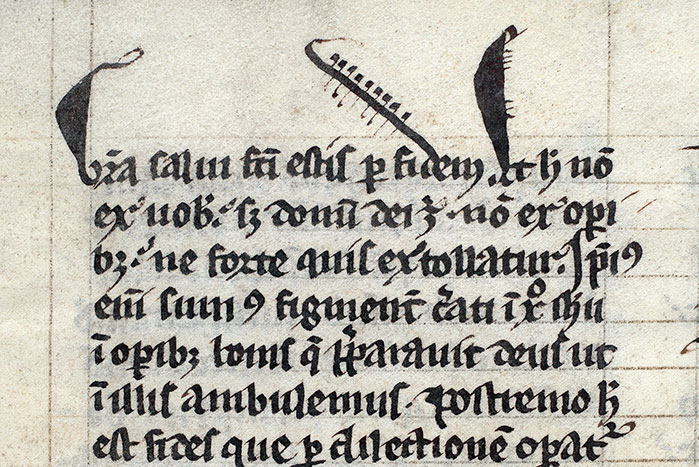 gr̄a salui fc̄i estis ꝑ fidem. ⁊ h̄ nō
ex uob̾. sꝫ donū dei ē. nō ex oꝑi
bꝫ. ne forte quis extollatur. Ip̄iꝰ
eni᷒ sumꝰ figment̄ c̾ati ī xͦ ihu
ī oꝑibꝫ bonis q̄ p̄parauit deus ut
ī illis ambulemus. Postremo h̄
est fides que ꝑ dilectionē oꝑat᷑